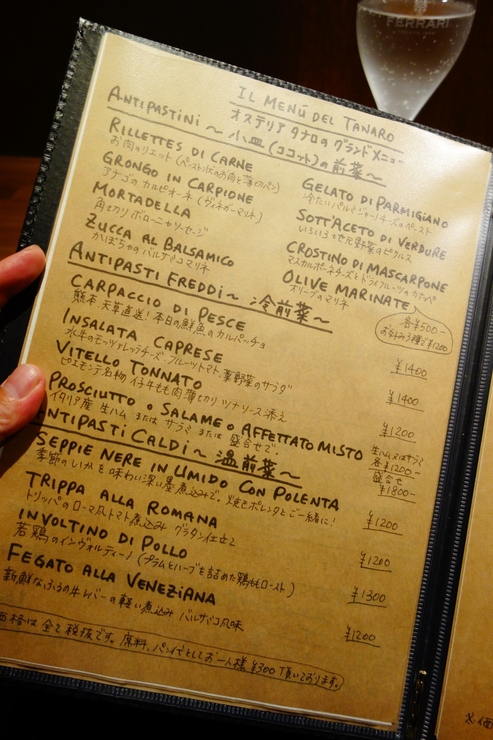 FERRARI
IL MENŪ DEL TANARO
オステリア タナロのグランドメニュー
ANTIPASTINI ～ 小皿 (ココット)の前菜～
RILLETTES DI CARNE
お肉のリエット (ペースト状のお肉と薄切りパン)
GRONGO IN CARPIONE
アナゴの カルピオーネ (ヴィネガーマリネ)
MORTADELLA
角切り ボローニャソーセージ
ZUCCA AL BALSAMICO
かぼちゃの バルサミコマリネ
GELATO DI PARMIGIANO
冷たいパルミジャーノチーズのペースト
SOTT'ACETO DI VERDURE
いろいろな地元野菜のピクルス
CROSTINO DI MASCARPONE
マスカルポーネチーズとドライフルーツのカナッペ
OLIVE MARINATE
オリーブのマリネ
各¥500-
お好み3種¥1200
ANTIPASTI FREDDI～ 冷前菜～
CARPACCIO DI PESCE
熊本 天草直送! 本日の鮮魚のカルパッチョ
¥1400
INSALATA CAPRESE
水牛のモッツァレッラチーズ、フルーツトマト、葉野菜のサラダ
¥1400
VITELLO TONNATO
ピエモンテ名物 仔牛もも肉薄切り ツナソース添え
¥1200
PROSCIUTTO O SALAME O AFFETTATO MISTO
イタリア産 生ハム または サラミ または 盛合せで.
生ハム又はサラミ
各¥1200-
盛合せ
¥1800-
ANTIPASTI CALDI～ 温前菜～
SEPPIE NERE IN UMIDO CON POLENTA
季節のいかを味わい深い墨煮込みで。焼きポレンタとご一緒に!
¥1200
TRIPPA ALLA ROMANA
トリッパのローマ風トマト煮込み グラタン仕立て
¥1200
INVOLTINO DI POLLO
若鶏のインヴォルティーノ (プラムとハーブを詰めた鶏ももロースト)
¥1300
FEGATO ALLA VENEZIANA
新鮮なふるの牛レバーの軽い煮込み バルサミコ風味
¥1200
価格は全て税抜です。席料、パン代としてお一人様¥300頂いております。
※価